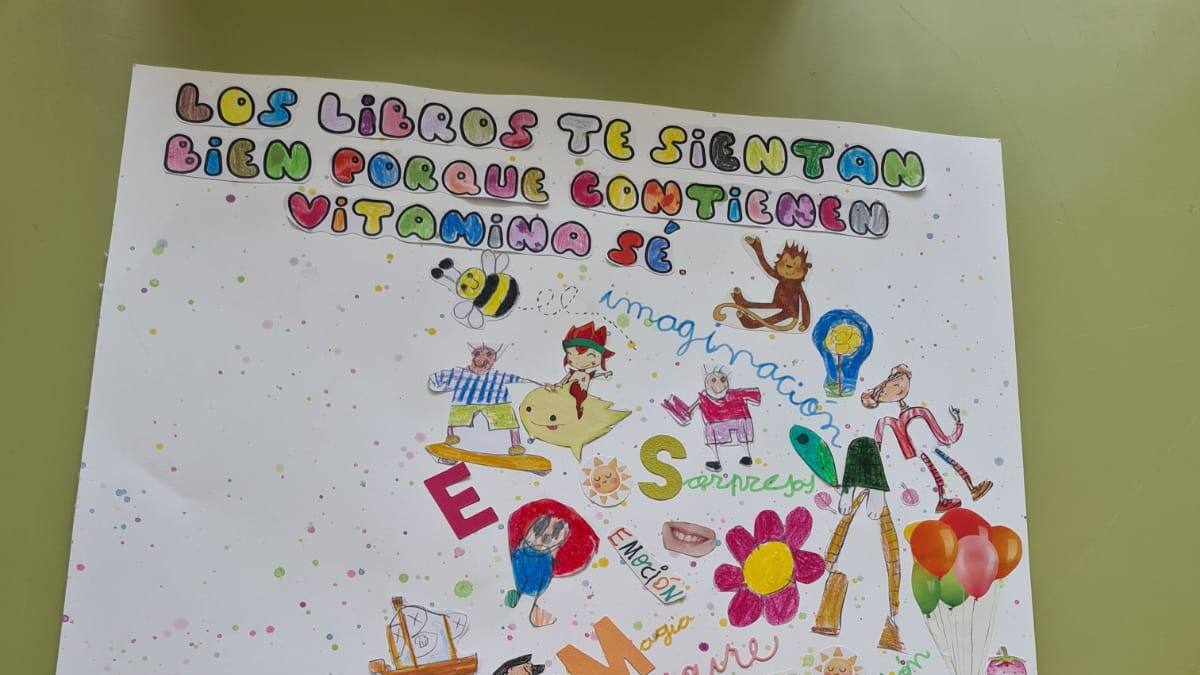 LOS LIBROS TE SIENTAN
BIEN PORQUE CONTIENEN
VITAMINA SÉ.
imaginación
Sorpresas
E
EMOCIÓN
Magia
aire
ón